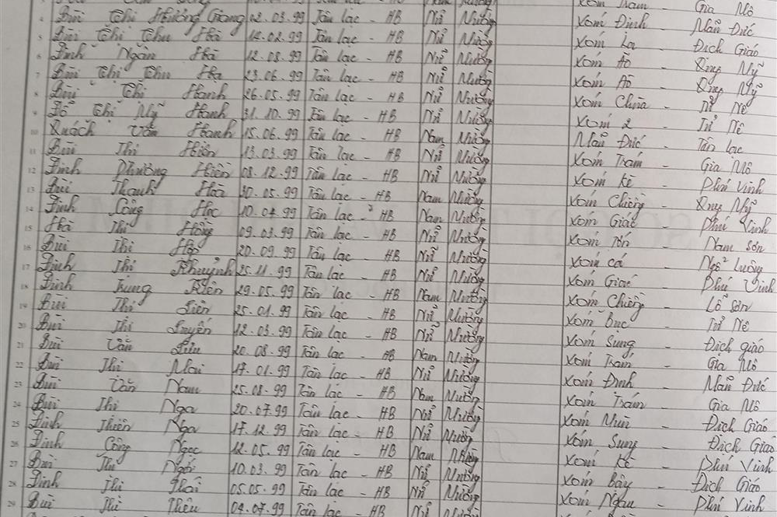 4 Bùi Thị Hương Giang 02.03.99 Tân lạc - HB Nữ Mường Xóm Đình - Mãn Đức
5 Bùi Thị Thu Hà 14.02.99 Tân lạc - HB Nữ Mường Xóm - Địch Giáo
6 Đinh Ngân Hà 12.08.99 Tân lạc - HB Nữ Mường Xóm - Quy Mỹ
7 Bùi Thị Thu Hà 23.06.99 Tân lạc - HB Nữ Mường Xóm - Quy Mỹ
8 Bùi Thị Hạnh 26.05.99 Tân lạc - HB Nữ Mường Xóm Chùa - Tử Nê
9 Thị Mỹ Hạnh 31.10.99 Tân lạc - HB Nữ Mường Xóm 2 - Tử Nê
10 Quách Văn Hạnh 15.06.99 Tân lạc - HB Nam Mường Mãn Đức - Tân lạc
11 Bùi Thị Hiền 13.03.99 Tân lạc - HB Nữ Mường Xóm Trám - Gia Mô
12 Đinh Phương Hiền 08.12.99 Tân lạc - HB Nữ Mường Xóm Kè - Phú Vinh
13 Bùi Thanh Hoà 30.05.99 Tân lạc - HB Nam Mường Xóm Chiềng - Quy Mỹ
14 Đinh Công Học 10.04.99 Tân lạc - HB Nam Mường Xóm Giác - Phú Vinh
15 Hà Thị Hồng 09.03.99 Tân lạc - HB Nữ Mường Xóm - Nam Sơn
16 Bùi Thị 20.09.99 Tân lạc - HB Nữ Mường Xóm - Ngổ Luông
17 Đinh Thị Khuỳnh 25.11.99 Tân lạc - HB Nữ Mường Xóm Giác - Phú Vinh
18 Đinh Trung Kiên 29.05.99 Tân lạc - HB Nam Mường Xóm Chiềng - Lỗ Sơn
19 Bùi Thị Liên 25.01.99 Tân lạc - HB Nữ Mường Xóm - Tử Nê
20 Bùi Thị Luyến 12.03.99 Tân lạc - HB Nữ Mường Xóm Sung - Địch giáo
21 Bùi Văn 20.08.99 Tân lạc - HB Nam Mường Xóm Trám - Gia Mô
22 Bùi Thị Mai 17.01.99 Tân lạc - HB Nữ Mường Xóm Đình - Mãn Đức
23 Bùi Văn Nam 25.08.99 Tân lạc - HB Nam Mường Xóm Trám - Gia Mô
24 Bùi Thị Nga 20.07.99 Tân lạc - HB Nữ Mường Xóm - Địch Giáo
25 Đinh Thiên Nga 17.12.99 Tân lạc - HB Nữ Mường Xóm Sung - Địch Giáo
26 Đinh Công Ngọc 12.05.99 Tân lạc - HB Nam Mường Xóm Kè - Phú Vinh
27 Bùi Thị 10.03.99 Tân lạc - HB Nữ Mường Xóm Bây - Địch Giáo
28 Đinh Thị Thái 05.05.99 Tân lạc - HB Nữ Mường Xóm Ngau - Phú Vinh
29 Bùi Thị Thêu 04.07.99 Tân lạc - HB Nữ Mường